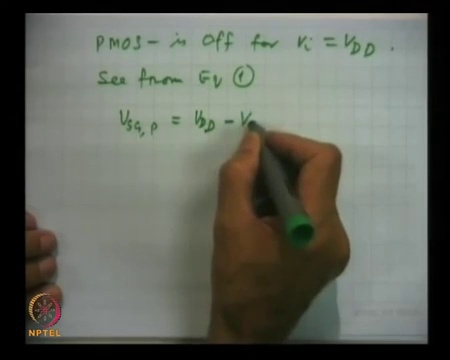 PMOS - is Off for Vi = VDD.
See from Eq ①
VSG,P = VDD - V
NPTEL